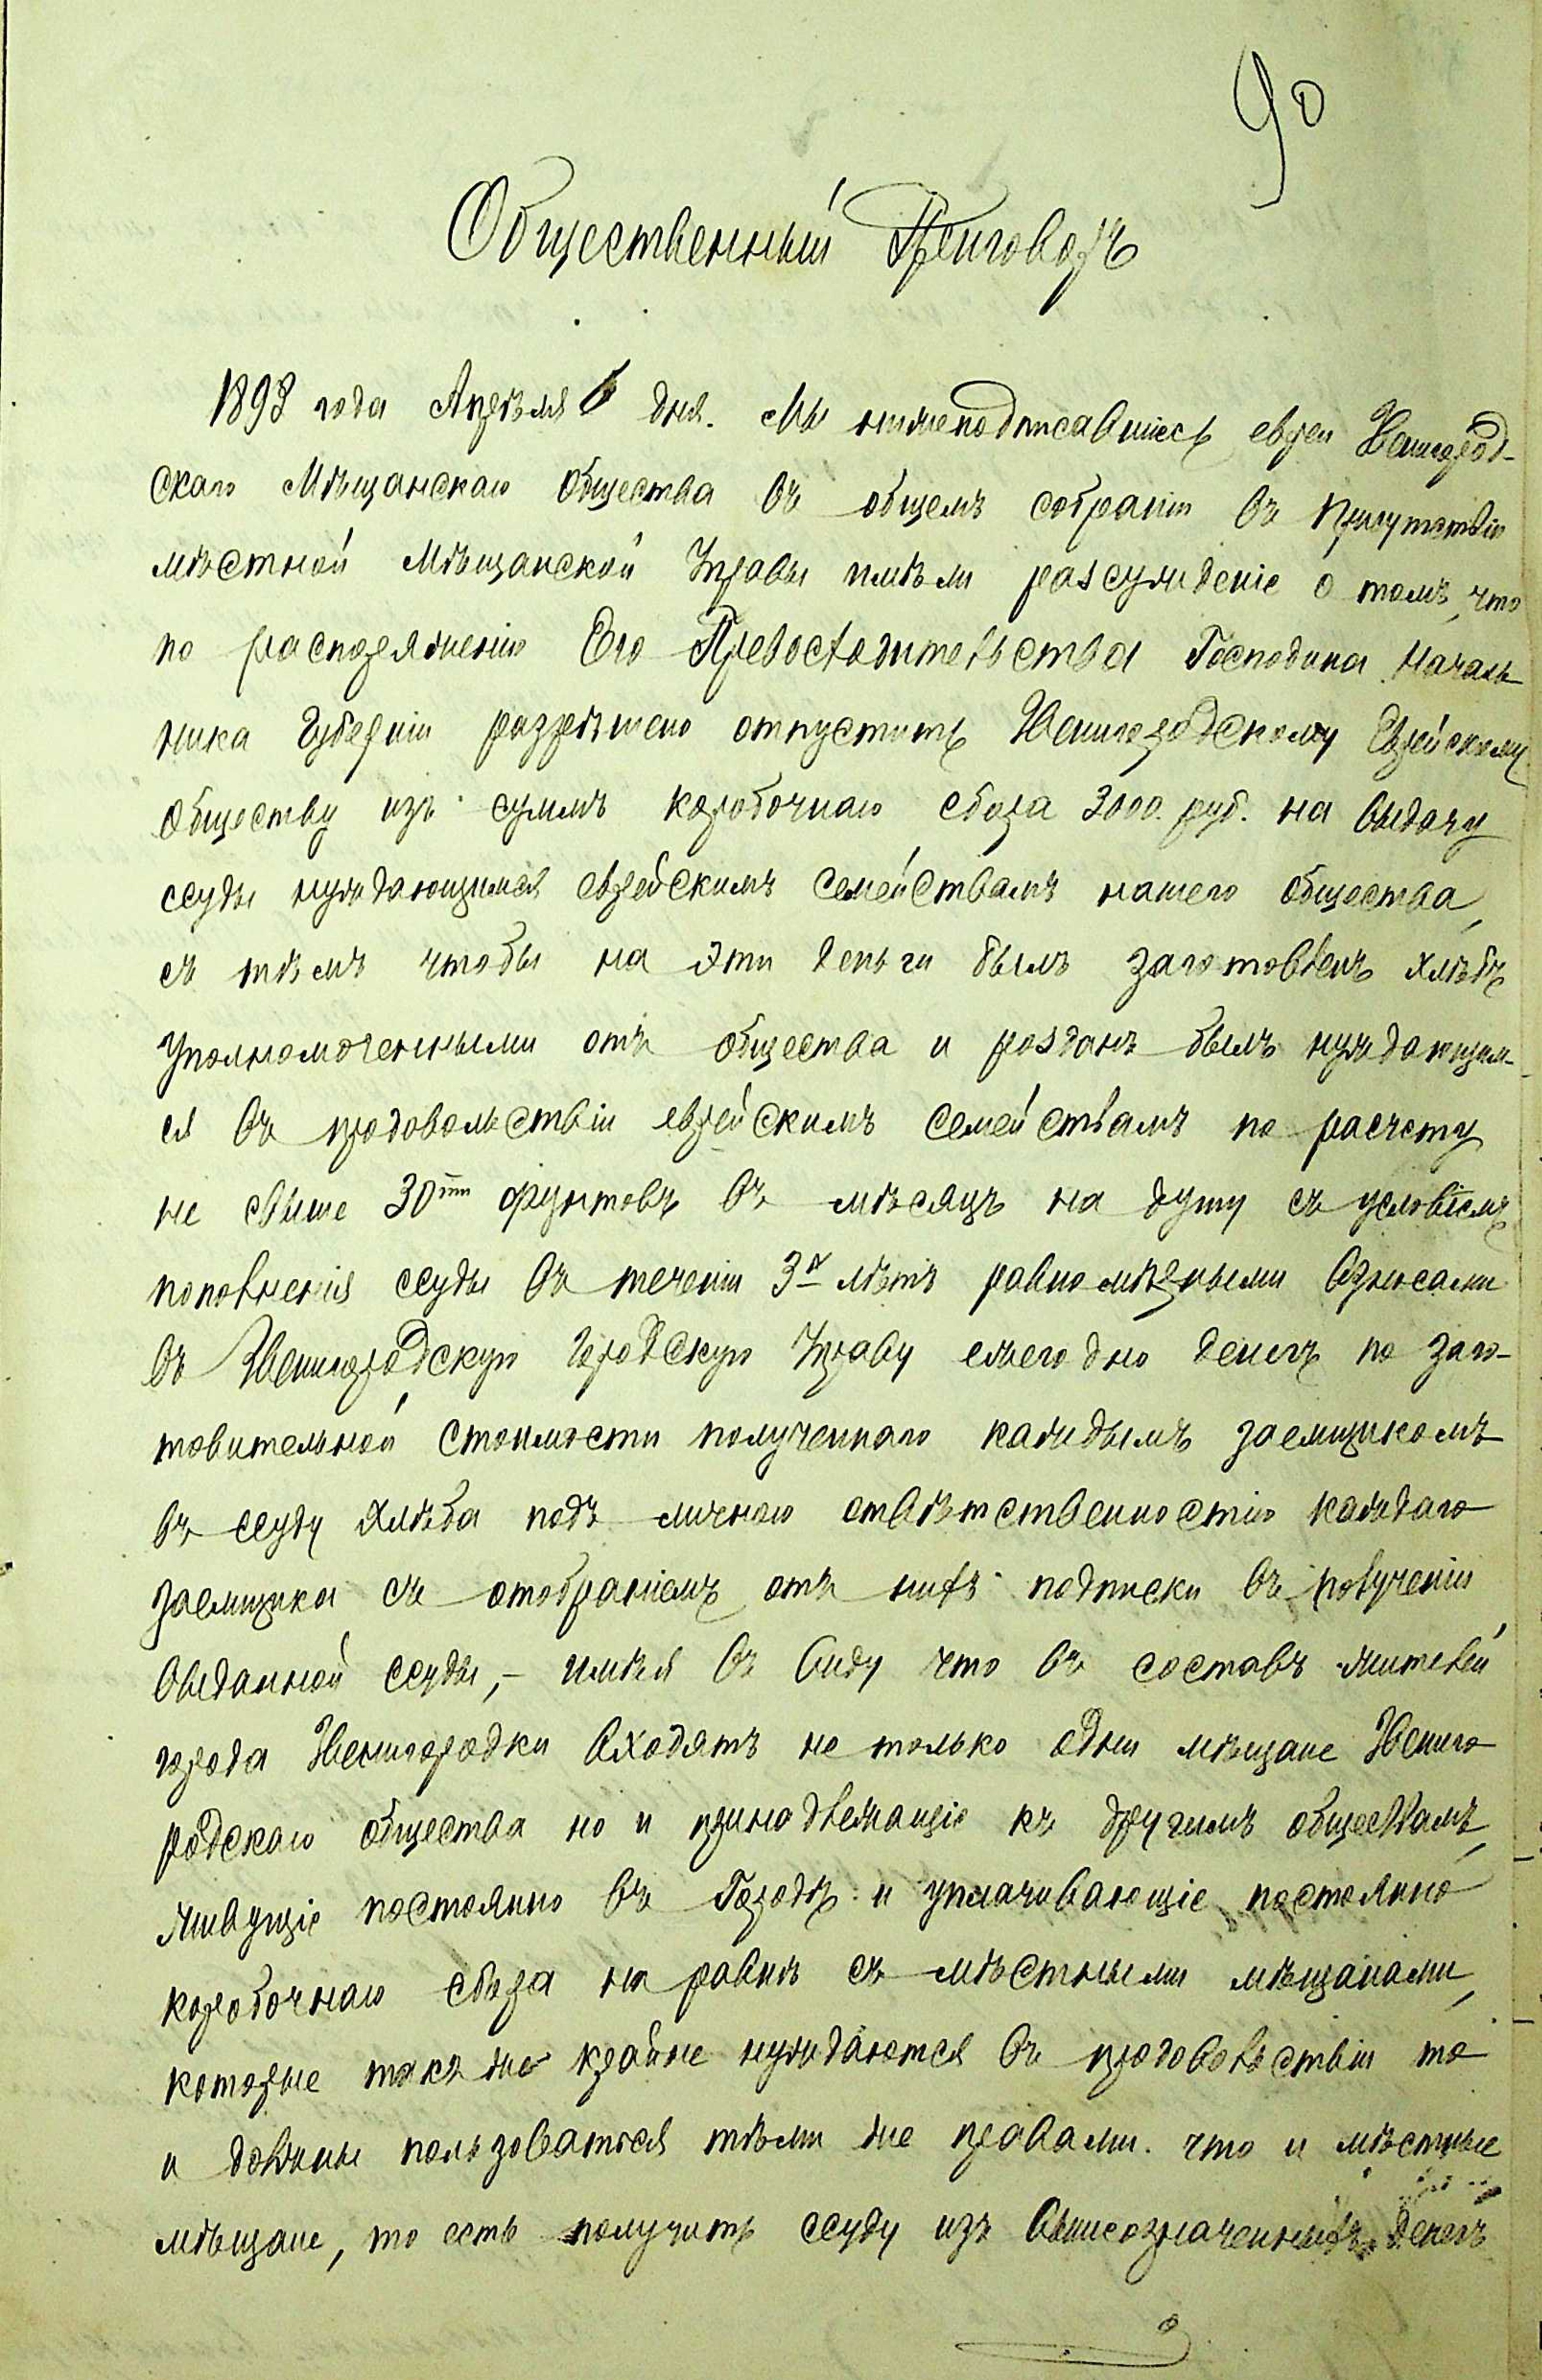 90
Общественный Приговоръ
1893 года Апрѣля 6 дня. Мы нижеподписавшіесь евреи Звенигород-
скаго Мѣщанскаго Общества въ общемъ собраніи въ присутствіи
мѣстной Мѣщанской Управы имѣли разсужденіе о томъ, что
по распоряженію Его Превосходительства Господина Началь-
ника Губерніи разрѣшено отпустить Звенигородскому Еврейскому
Обществу изъ суммъ коробочнаго сбора 3000 руб. на выдачу
ссуды нуждающимся еврейскимъ семействамъ нашего общества,
съ тѣмъ чтобы на эти деньги былъ заготовленъ хлѣбъ
уполномоченными отъ общества и розданъ былъ нуждающим-
ся въ продовольствіи еврейскимъ семействамъ по расчету
не свыше 30ти фунтовъ въ мѣсяцъ на душу съ условіемъ
пополненія ссуды въ теченіи 3х лѣтъ равномѣрными взносами
въ Звенигородскую Городскую Управу ежегодно денегъ по заго-
товительной стоимости полученнаго каждымъ заемщикомъ
въ ссуду хлѣба подъ личною отвѣтственностію каждаго
заемщика съ отобраніемъ отъ нихъ подписки въ полученіи
выданной ссуды, – имѣя въ виду что въ составъ жителей
города Звенигородки входятъ не только одни мѣщане Звениго-
родскаго общества но и принадлежащіе къ другимъ обществамъ,
живущіе постоянно въ Городѣ и уплачивающіе постоянно
коробочнаго сбора на равнѣ съ мѣстными мѣщанами,
которые такъ же крайне нуждаются въ продовольствіи то
и должны пользоваться тѣми же правами. что и мѣстные
мѣщане, то есть получить ссуду изъ вышеозначенныхъ денегъ